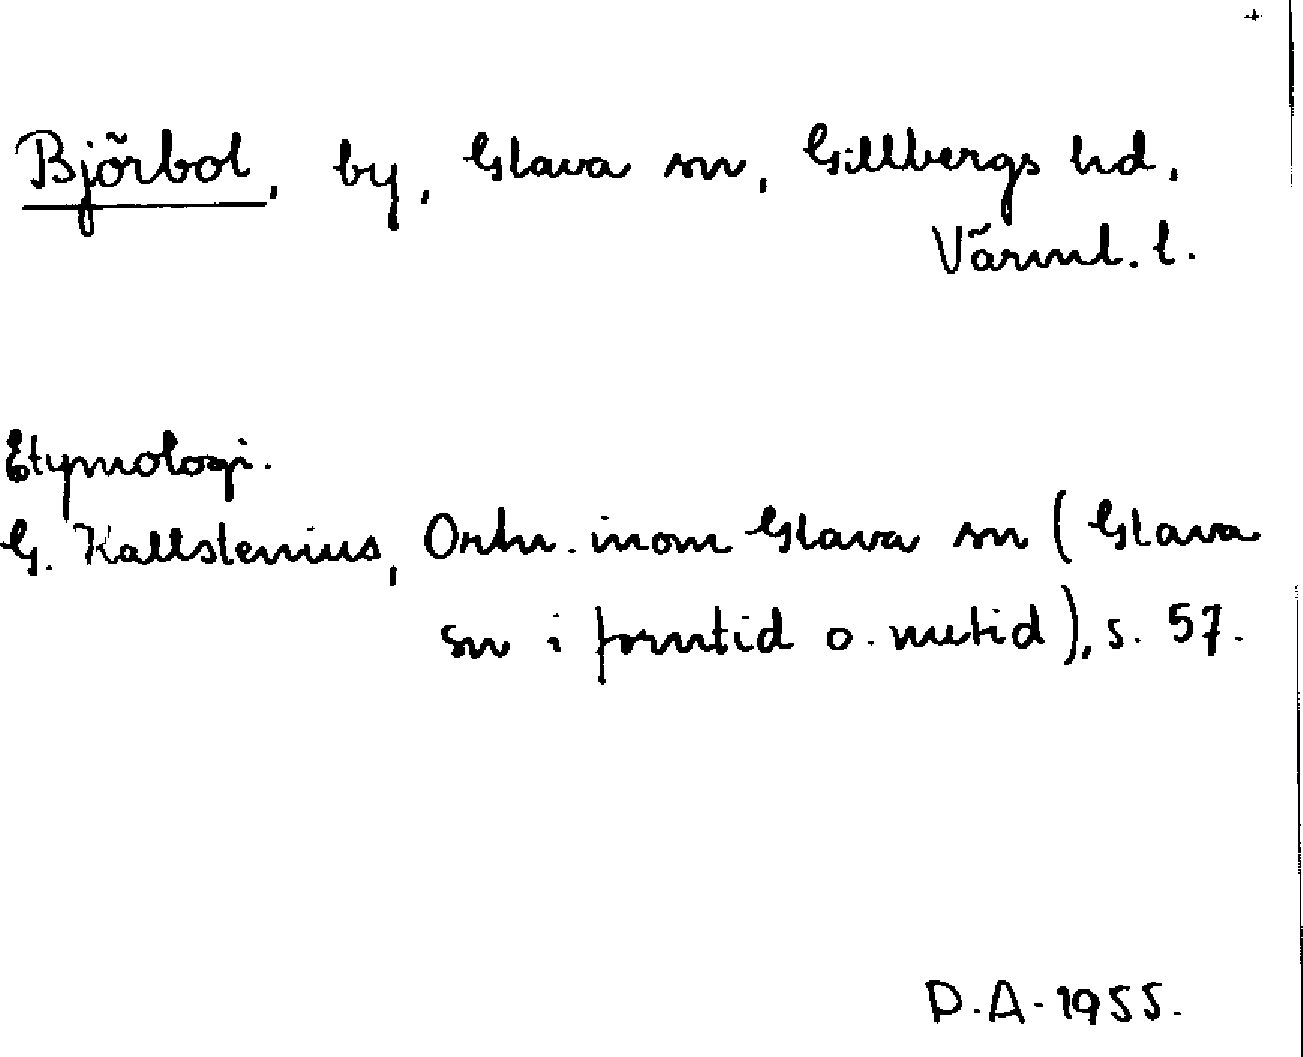 +
Björbol, by, Glava sn, Gillbergs hd,
Värml. l.
Etymologi.
G. Kallstenius, Ortn. inom Glava sn (Glava
sn i forntid o. nutid), s. 57.
D.A. 1955.